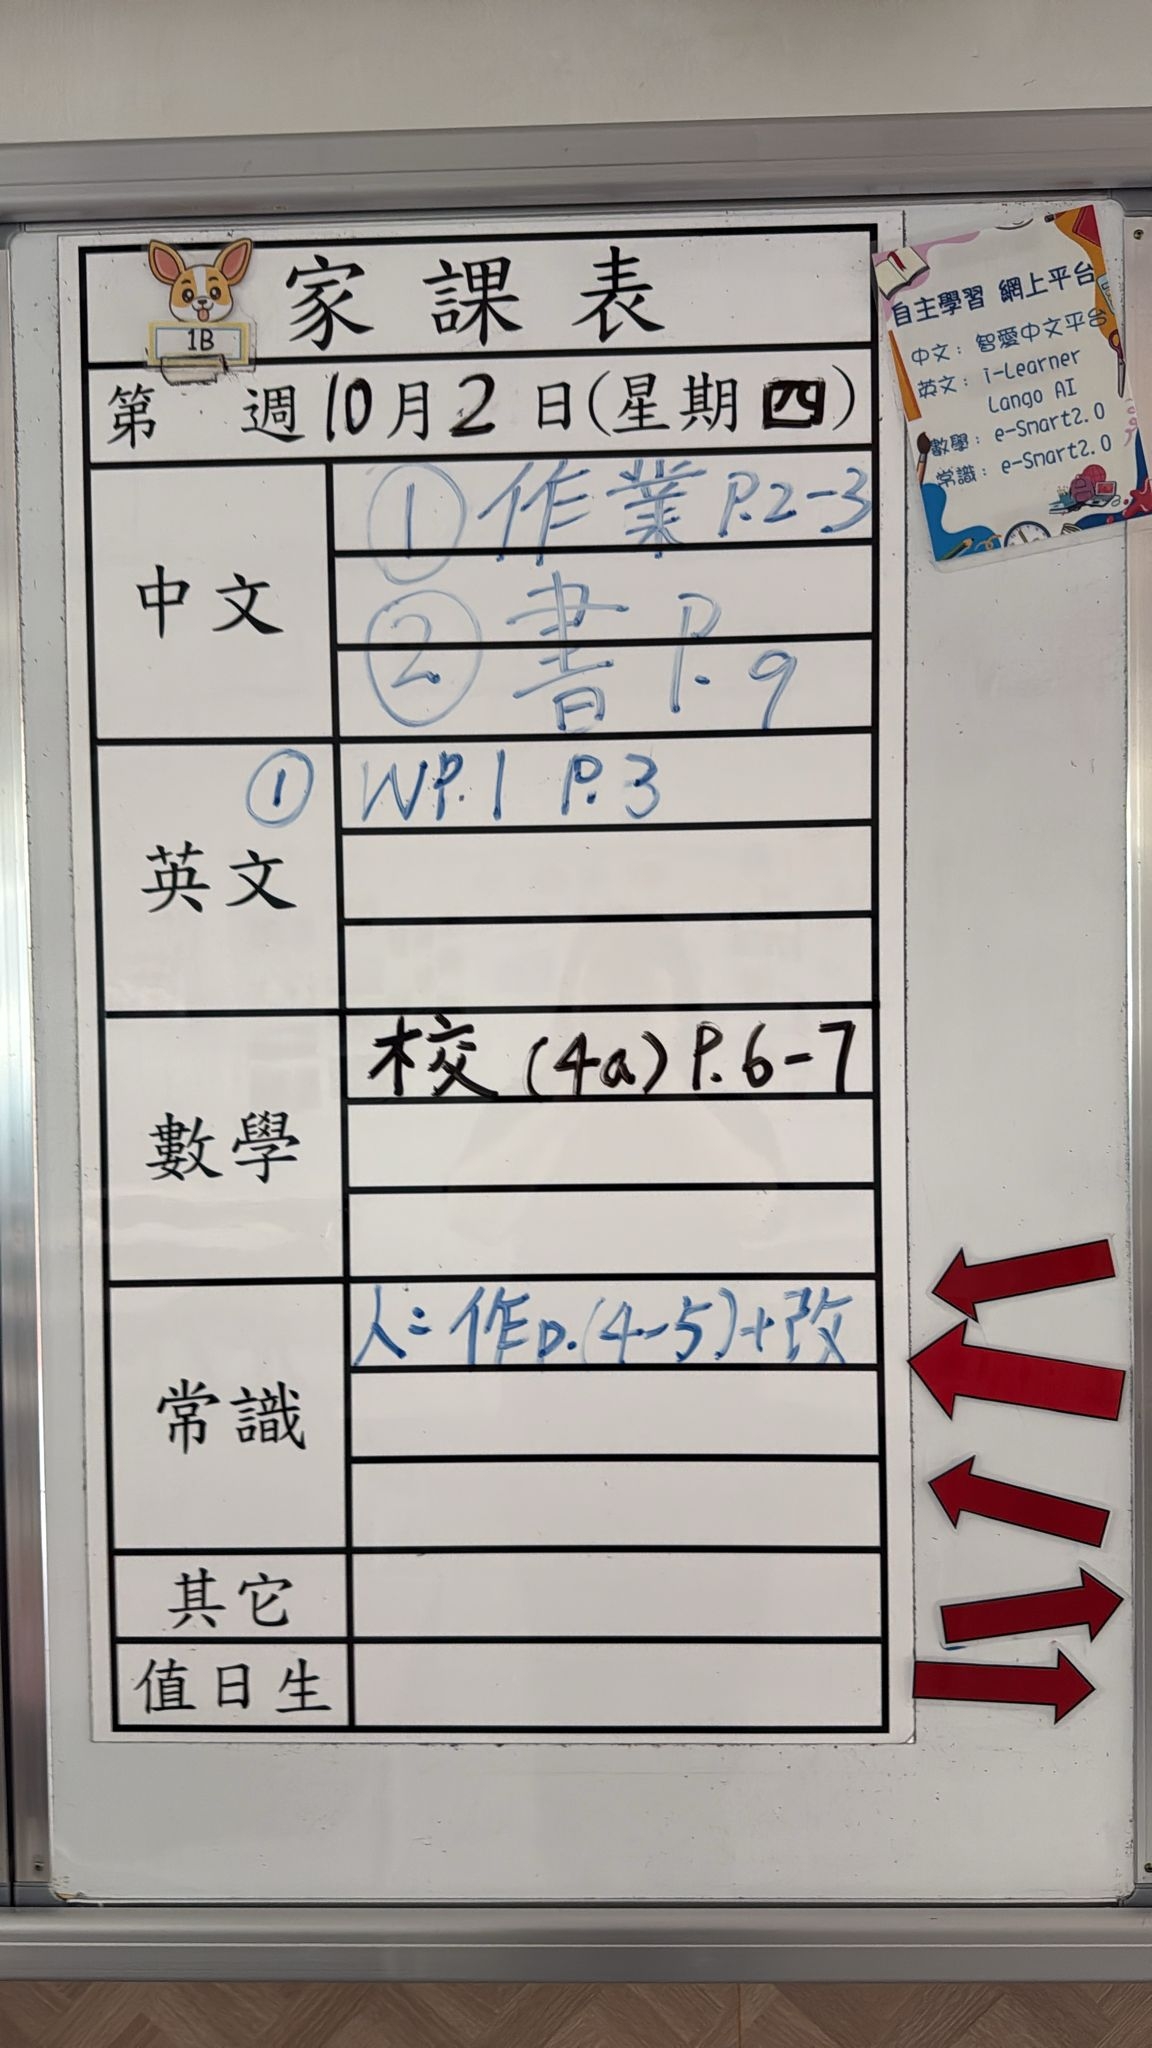 家課表
1B
第 週10月2日(星期四)
中文
① 作業 P.2-3
② 書 P.9
英文
① WP.1 P.3
數學
校(4a) P.6-7
常識
人:作p.(4-5)+改
其它
值日生
1
自主學習 網上平台
中文：智愛中文平台
英文：i-Learner
Lango AI
數學：e-Smart2.0
常識：e-Smart2.0